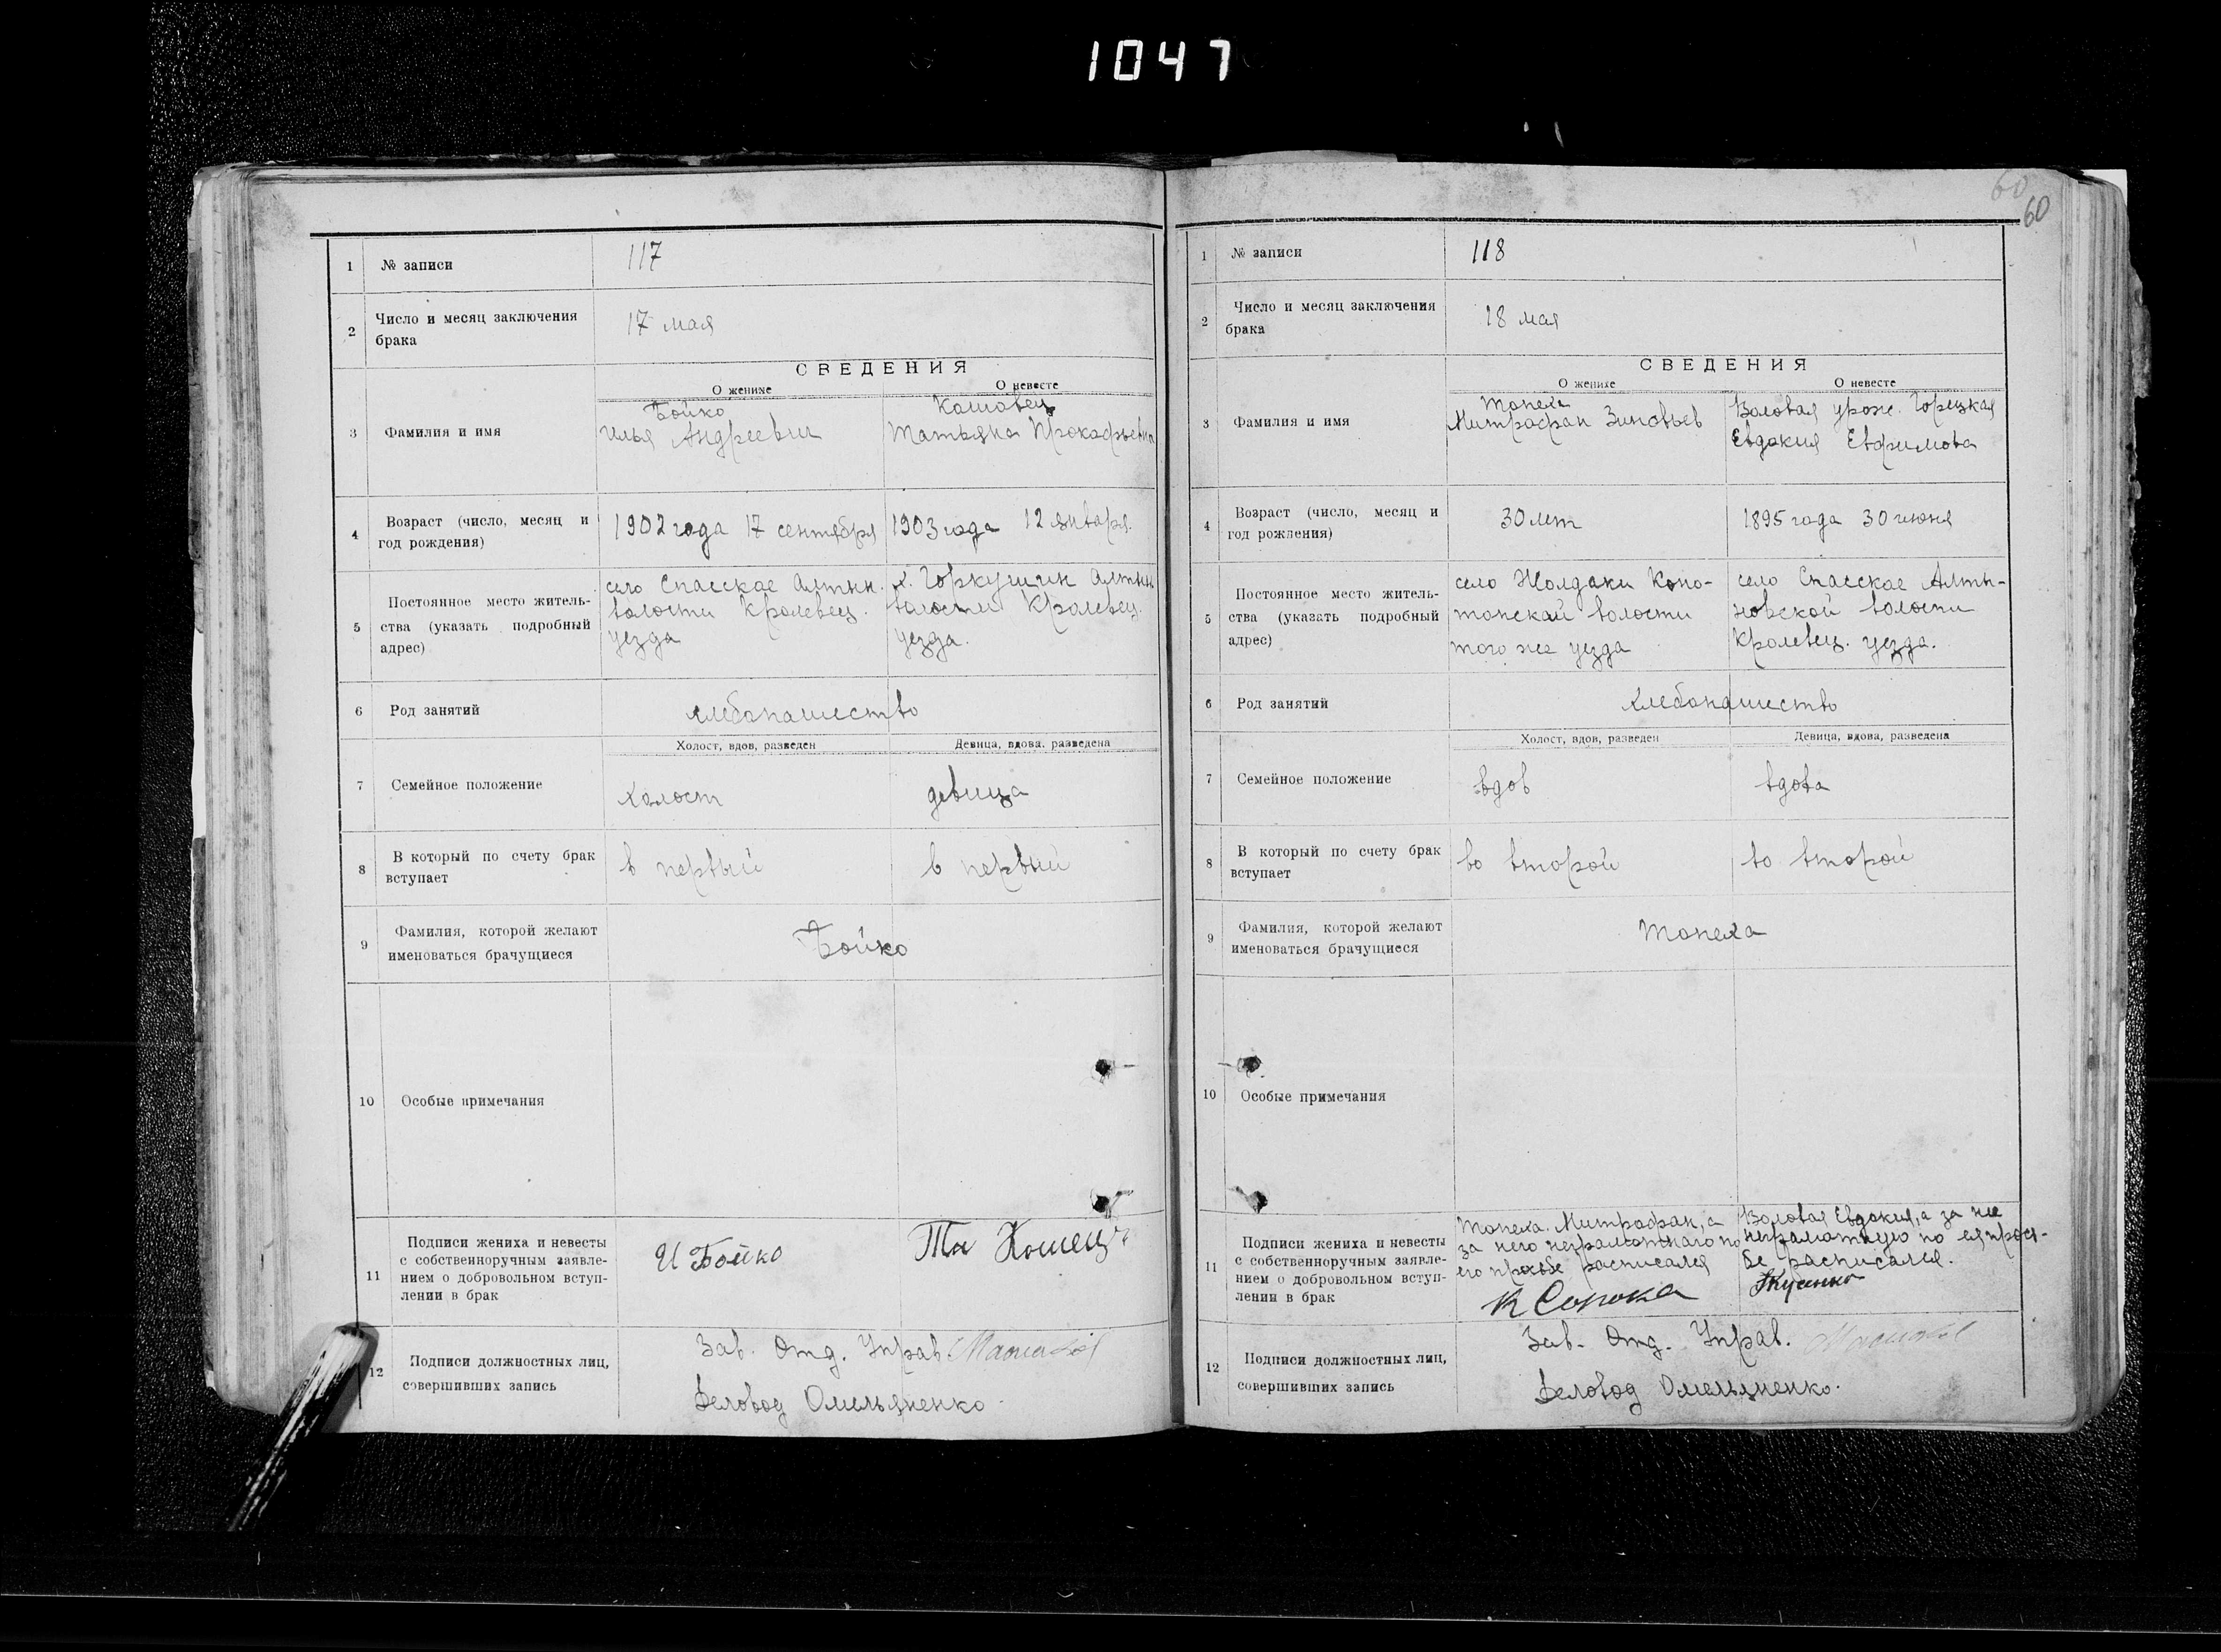 1047
60
60
1 № записи 117
2 Число и месяц заключения
брака
17 мая
СВЕДЕНИЯ
О женихе О невесте
3 Фамилия и имя
Бойко
Илья Андреевич
Кошовец
Татьяна Прокофьевна
4 Возраст (число, месяц и
год рождения)
1902 года 17 сентября
1903 года 12 января.
5 Постоянное место житель-
ства (указать подробный
адрес)
село Спасское Алтын.
волости Кролевец.
уезда
х. Горкушин Алтын.
волости Кролевец.
уезда.
6 Род занятий хлебопашество
Холост, вдов, разведен Девица, вдова. разведена
7 Семейное положение холост девица
8 В который по счету брак
вступает
в первый в первый
9 Фамилия, которой желают
именоваться брачущиеся
Бойко
10 Особые примечания
11 Подписи жениха и невесты
с собственноручным заявле-
нием о добровольном вступ-
лении в брак
И Бойко Та Кошец
12 Подписи должностных лиц,
совершивших запись
Зав. Отд. Управ.
Деловод Омельяненко.
1 № записи 118
2 Число и месяц заключения
брака
18 мая
СВЕДЕНИЯ
О женихе О невесте
3 Фамилия и имя
Топеха
Митрофан Зиновьев
Воловая урож. Горецкая
Евдокия Ефимова
4 Возраст (число, месяц и
год рождения)
30 лет
1895 года 30 июня
5 Постоянное место житель-
ства (указать подробный
адрес)
село Жолдаки Коно-
топской волости
того же уезда
село Спасское Алты-
новской волости
Кролевец. уезда.
6 Род занятий хлебопашество
Холост, вдов, разведен Девица, вдова, разведена
7 Семейное положение вдов вдова
8 В который по счету брак
вступает
во второй во второй
9 Фамилия, которой желают
именоваться брачущиеся
Топеха
10 Особые примечания
11 Подписи жениха и невесты
с собственноручным заявле-
нием о добровольном вступ-
лении в брак
Топеха Митрофан, а
за него неграмотного по
его просьбе расписался
К Сорока
Воловая Евдокия, а за нее
неграмотную по ея прось-
бе расписался.
12 Подписи должностных лиц,
совершивших запись
Зав. Отд. Управ.
Деловод Омельяненко.